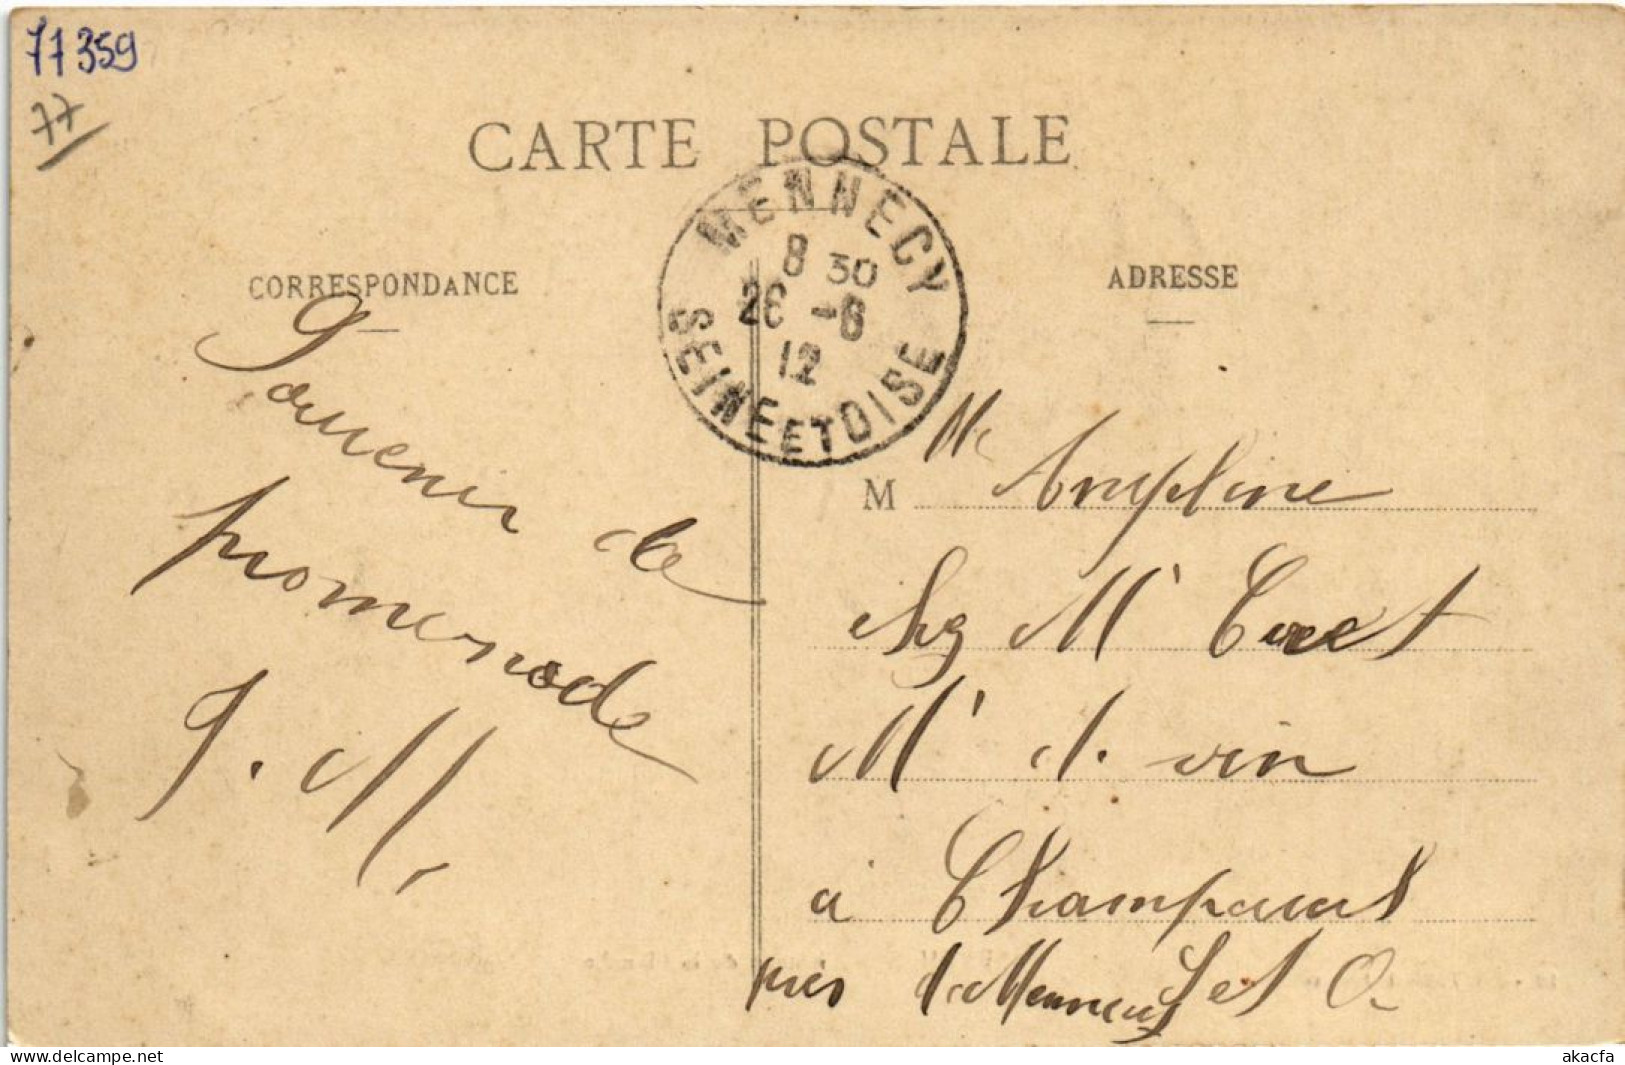 71359
77
CARTE POSTALE
MENNECY
8 30
26 -6
12
SEINE ET OISE
CORRESPONDANCE
ADRESSE
Souvenir de
promenade
J. M.
M
Mr
chez Mr
Md. vin
à Champcueil
près de Mennecy S et O
akacfa-77 359
akacfa